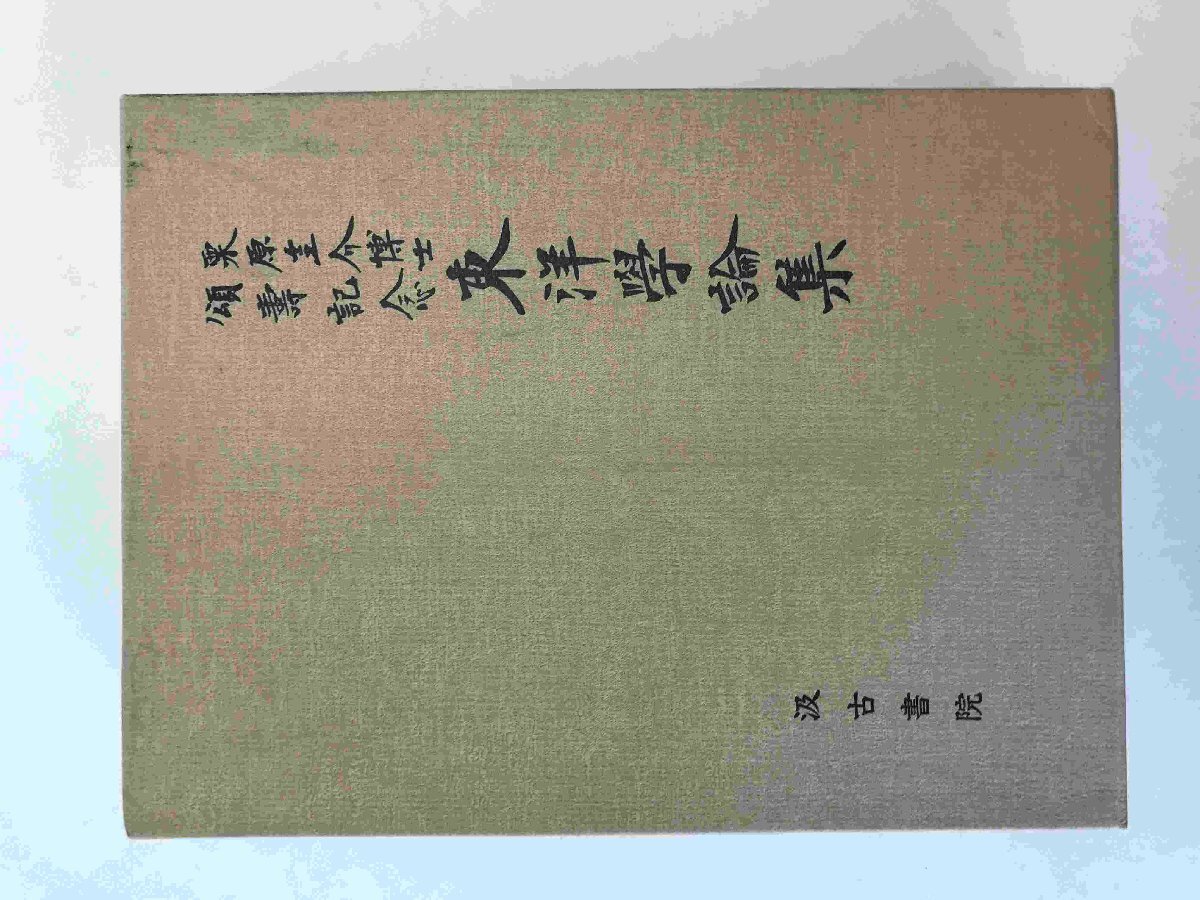 栗原圭介博士
頌壽記念
東洋學論集
汲古書院